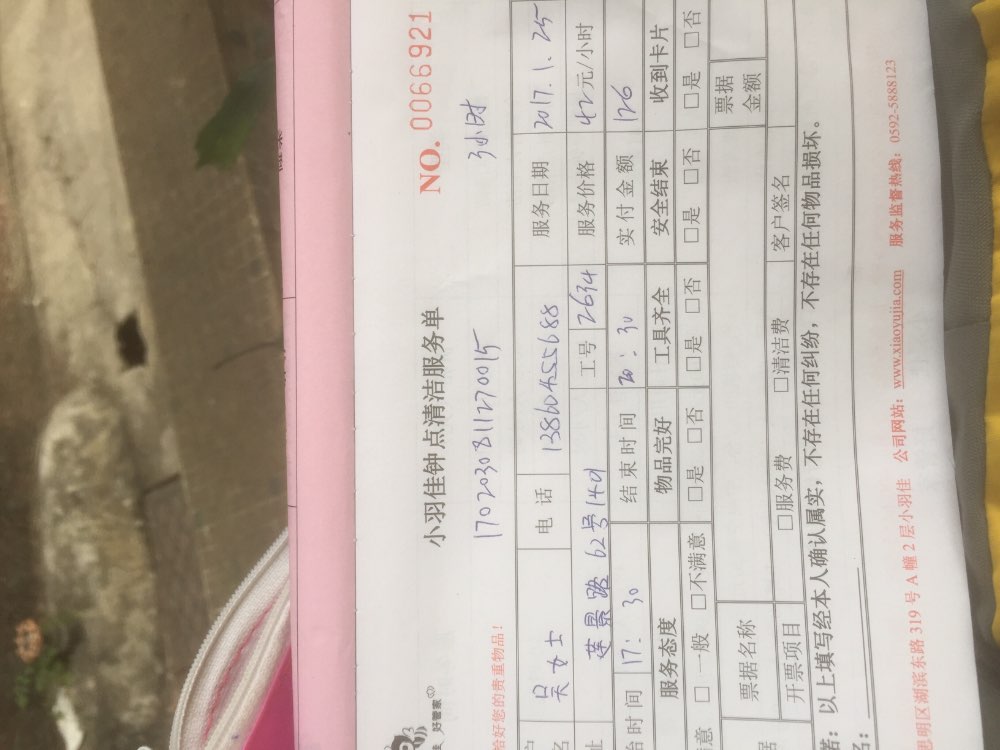 好管家
小羽佳钟点清洁服务单
NO. 0066921
拾好您的贵重物品!
1702030811270015
3小时
吴女士 电话 13860455688 服务日期 2017.1.25
址 莲景路62号1401 工号 2634 服务价格 42元/小时
时间 17:30 结束时间 20:30 实付金额 126
服务态度 物品完好 工具齐全 安全结束 收到卡片
意 □一般 □不满意 □是 □否 □是 □否 □是 □否 □是 □否
据 票据名称 票据金额
开票项目 □服务费 □清洁费 客户签名
以上填写经本人确认属实,不存在任何纠纷,不存在任何物品损坏。
名:
思明区湖滨东路319号A幢2层小羽佳 公司网站:www.xiaoyujia.com 服务监督热线:0592-5888123